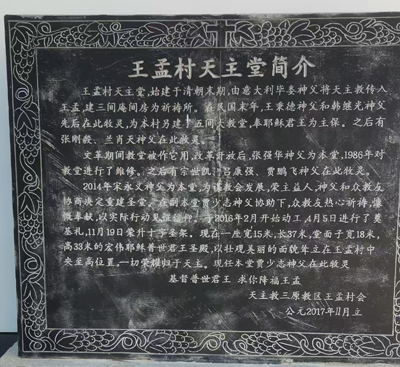 王孟村天主堂简介
王孟村天主堂,始建于清朝末期,由意大利毕娄神父将天主教传入
王孟,建三间庵间房为祈祷所。在民国末年,王秉德神父和韩继光神父
先后在此牧灵,为本村另建了五间大教堂,奉耶稣君王为主保。之后有
张刚毅、兰肖天神父在此牧灵。
文革期间教堂被作它用,改革开放后,张强华神父为本堂,1986年对
教堂进行了维修。之后有宗世凯、吕康强、贾鹏飞神父在此牧灵。
2014年宋永义神父为本堂,为谋教会发展,荣主益人,神父和众教友
协商决定重建圣堂。在副本堂贾少志神父协助下,众教友热心祈祷,慷
慨奉献,以实际行动见证信仰。于2016年2月开始动工,4月5日进行了奠
基礼,11月19日荣升十字圣架。现在一座宽15米,长37米,堂面子宽18米,
高33米的宏伟耶稣普世君王圣殿,以壮观美丽的面貌耸立在王孟村中
央至高位置,一切荣耀归于天主。现任本堂贾少志神父在此牧灵
基督普世君王 求你降福王孟
天主教三原教区王孟村会
公元2017年11月立